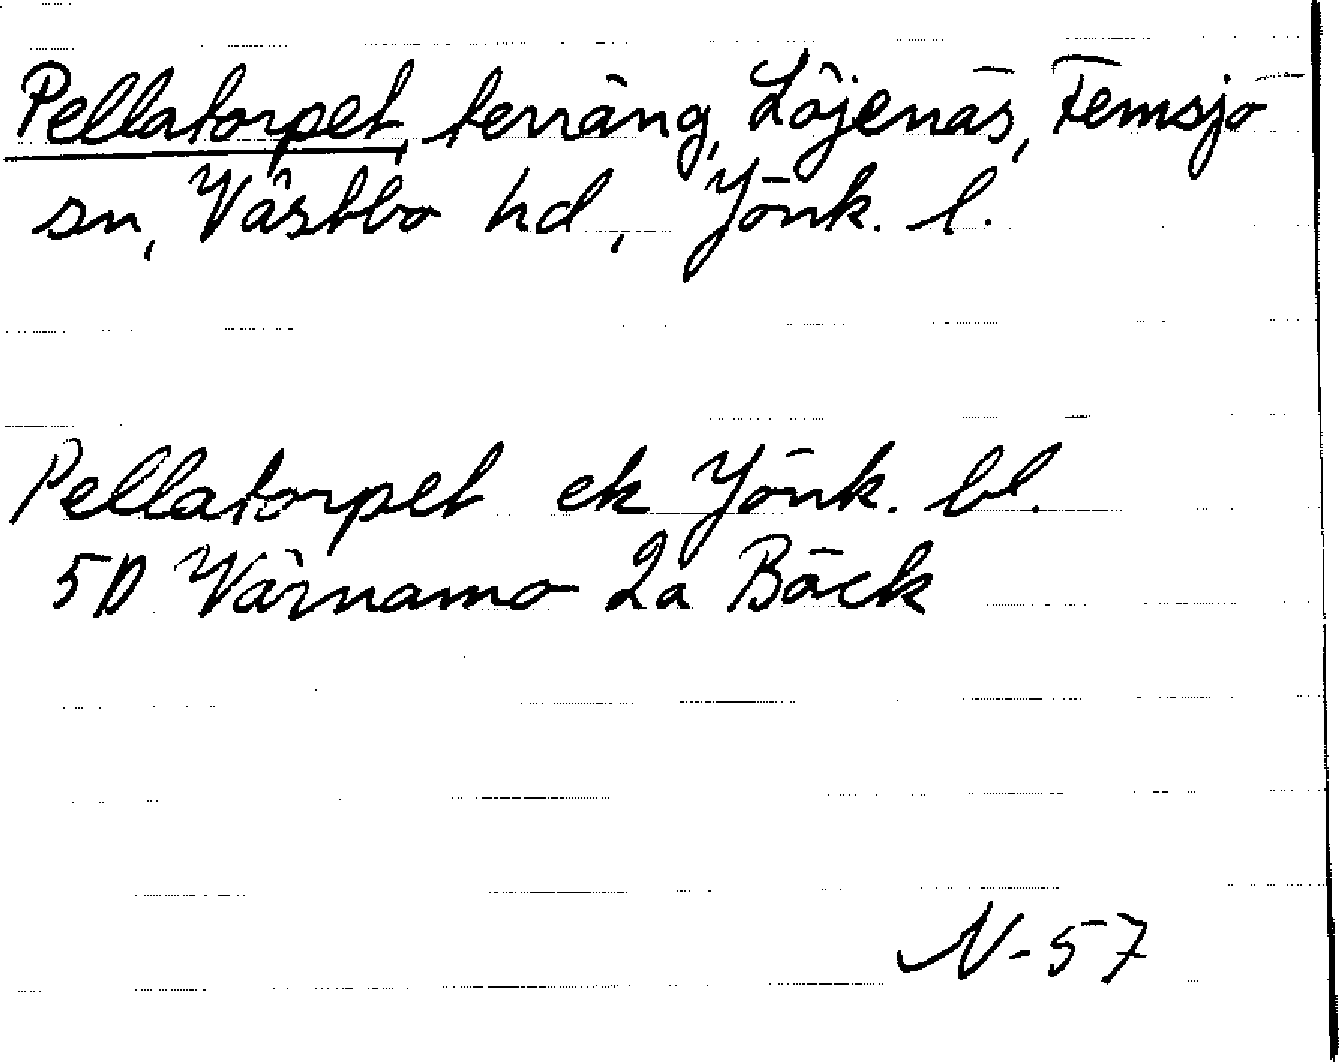 Pellatorpet, terräng, Löjenäs, Femsjö
sn, Västbo hd, Jönk. l.
Pellatorpet ek Jönk. bl.
5D Värnamo 2a Bäck
N-57